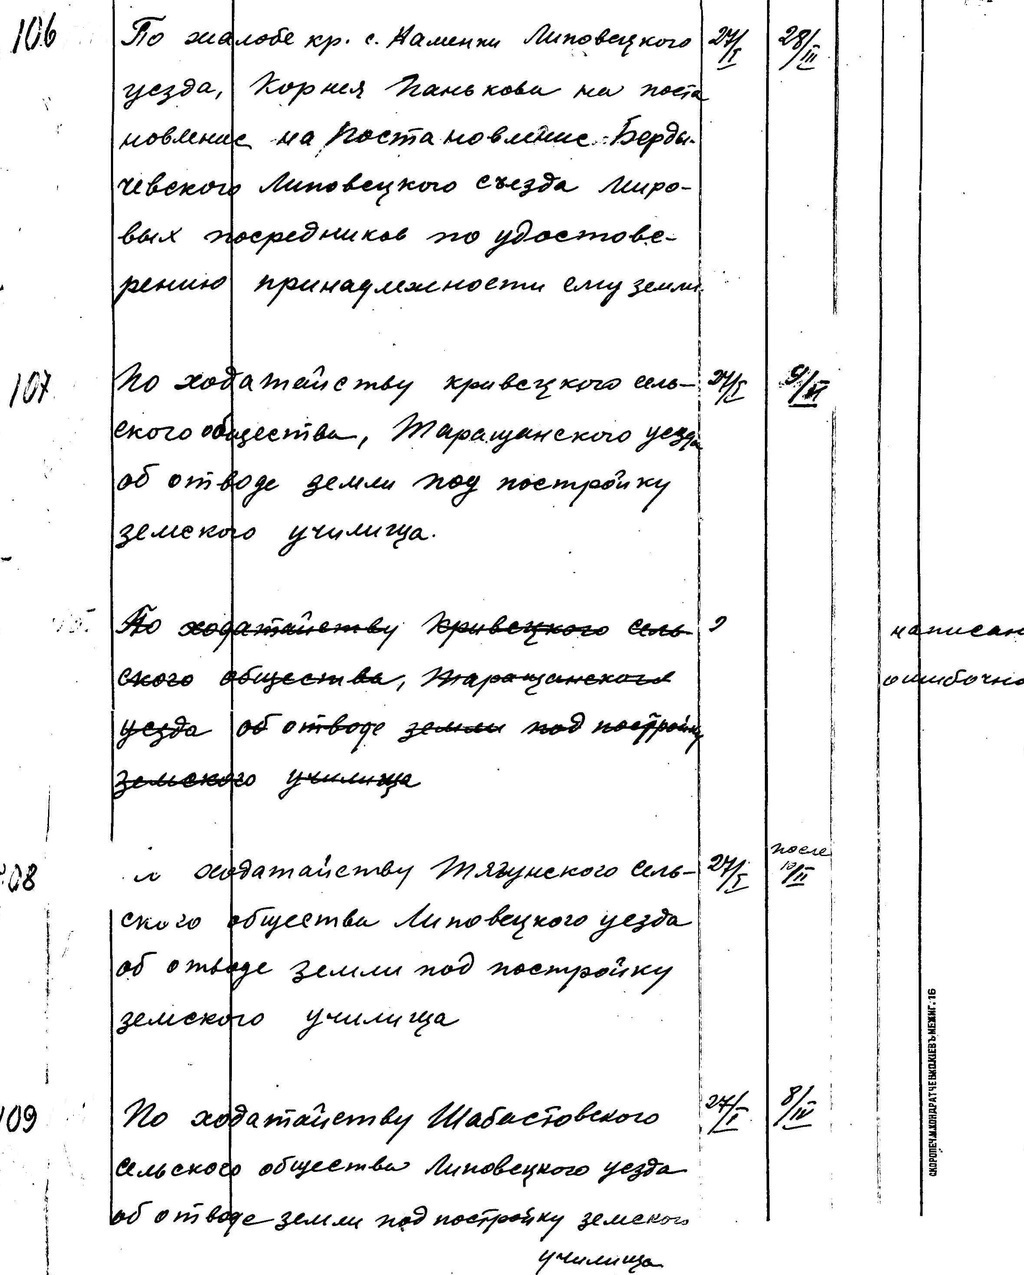 106 По жалобе кр. с. Каменки Липовецкого 27/I 28/III
уезда, Корнея Панькова на поста
новление на постановление Берды-
чевского Липовецкого съезда Миро-
вых посредников по удостове-
рению принадлежности ему земли.
107 По ходатайству кривецкого сель- 27/I 9/VI
ского общества, Таращанского уезда
об отводе земли под постройку
земского училища.
По ходатайству Кривецкого сель- написан
ского общества, Таращанского ошибочно
уезда об отводе земли под постройку
земского училища
108 ходатайству Тягунского Сель- 27/I после 10/II
ского общества Липовецкого уезда
об отводе земли под постройку
земского училища
109 По ходатайству Шабастовского 27/I 8/IV
сельского общества Липовецкого уезда
об отводе земли под постройку земского
училища
СКОРОПЕЧ. М. КОНДРАТЧЕНКО КІЕВЪ МЕЖИГ. 16